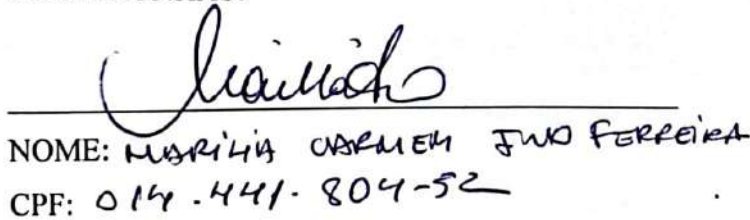 NOME: MARÍLIA CARMEM FERREIRA
CPF: 014.441.804-52